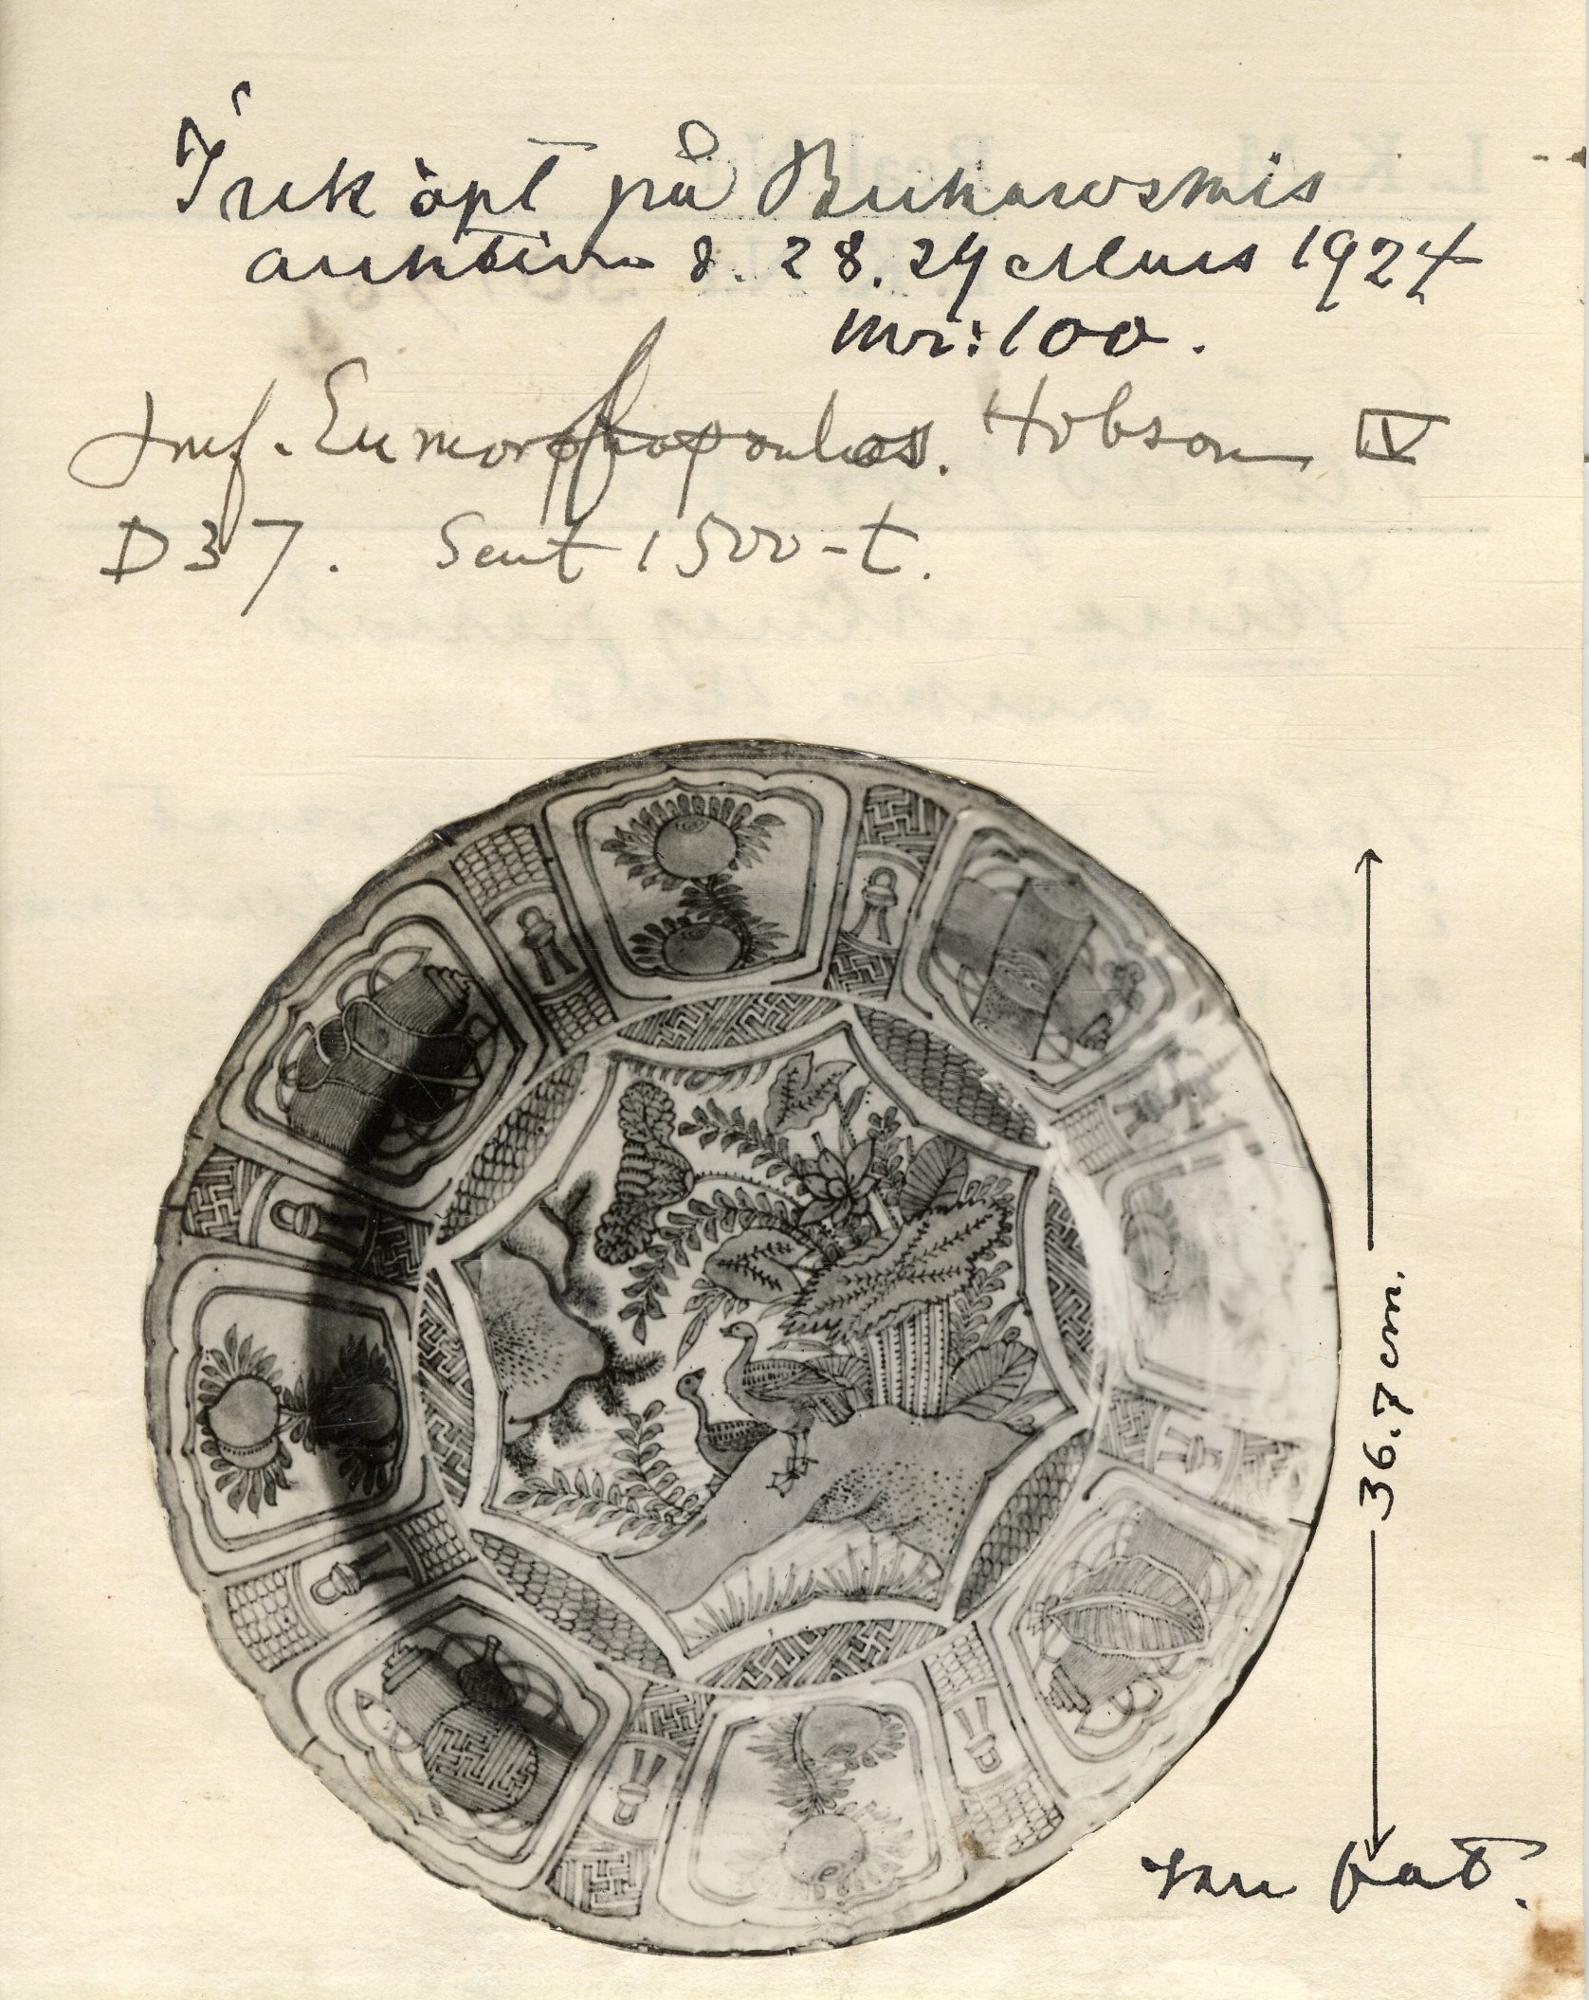 Inköpt på Bukowskis
auktion d. 28. 29 Mars 1924
nr: 100.
Jmf. Eumorfopoulos. Hobson IV
D37. Sent 1500-t.
36.7 cm.
fat.